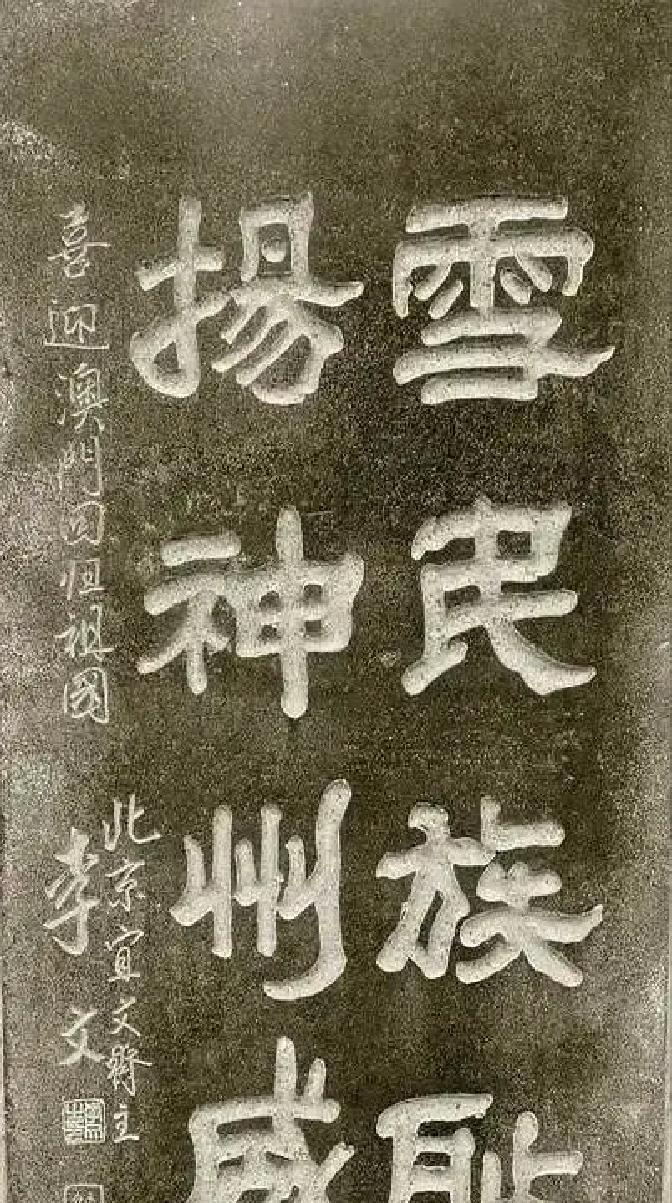 雪民族恥
揚神州威
喜迎澳門回歸祖國
北京宜文齋主
李文